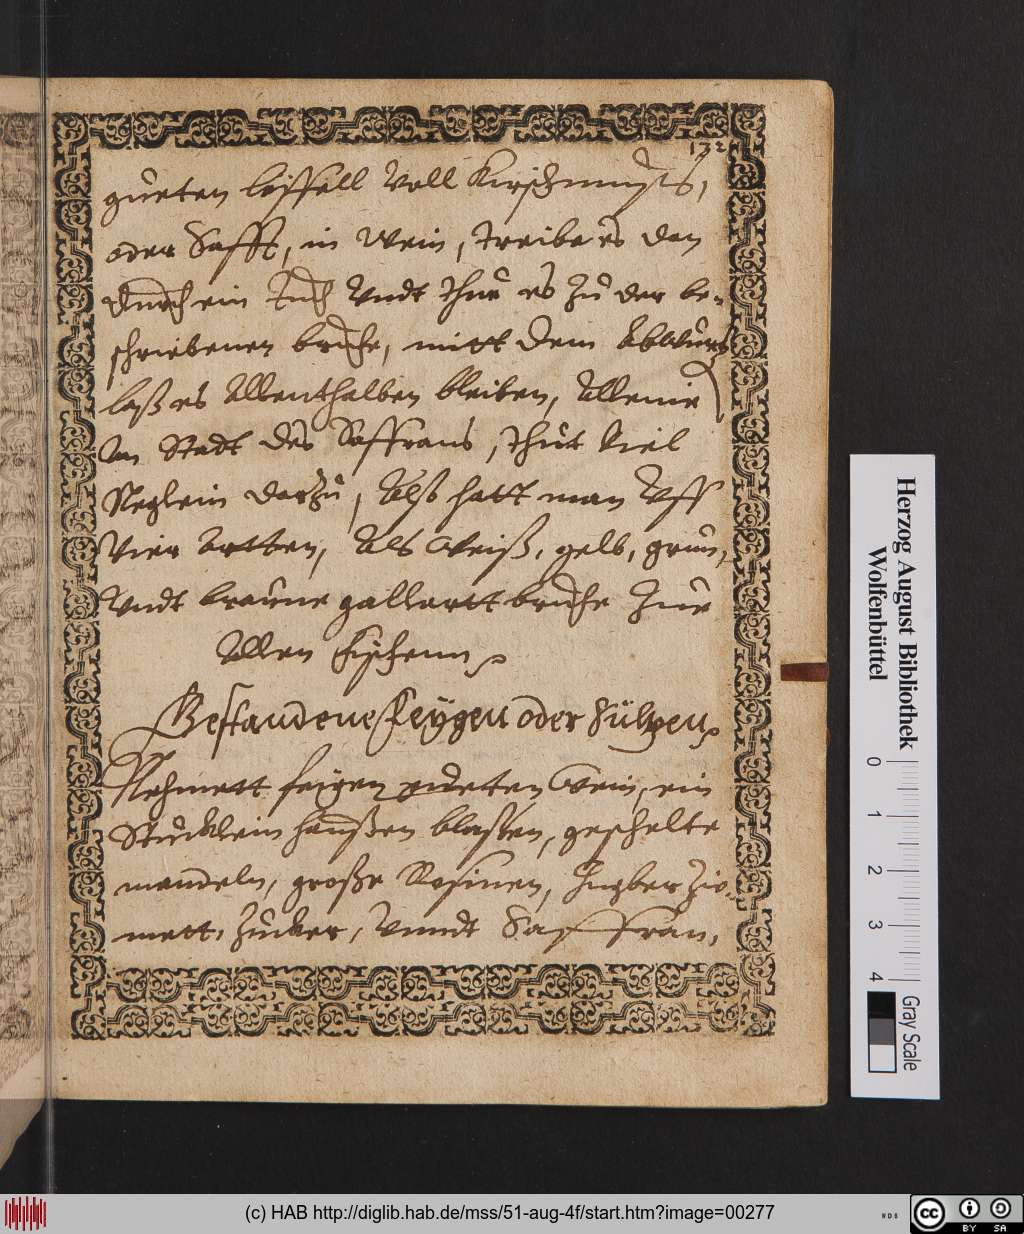 132
gueten leffell Voll Kirschmuß,
oder Safft, in Wein, treibe es den
durch ein Tuch Vndt thue es Zu der be-
schriebenen bruhe, mitt dem Abwurtz
laß es Allenthalben bleiben, Alleine
An Stadt des Saffrans, thut Viel
Neglein darZu, Alß hatt man Vff
Vier Artten, Als Weiß, gelb, grun,
Vndt braune gallartt bruhe Zue
Allen Fischenn
Gestandene Feygen oder Sültzen
Nehmett feigen Wein, ein
Stucklein haußen blaßen, geschelte
mandeln, große Rosinen, Ingber Zim-
mett, Zucker, Vnndt Saffran,
Herzog August Bibliothek
Wolfenbüttel
0 1 2 3 4
Gray Scale
(c) HAB http://diglib.hab.de/mss/51-aug-4f/start.htm?image=00277
WDB
cc BY SA